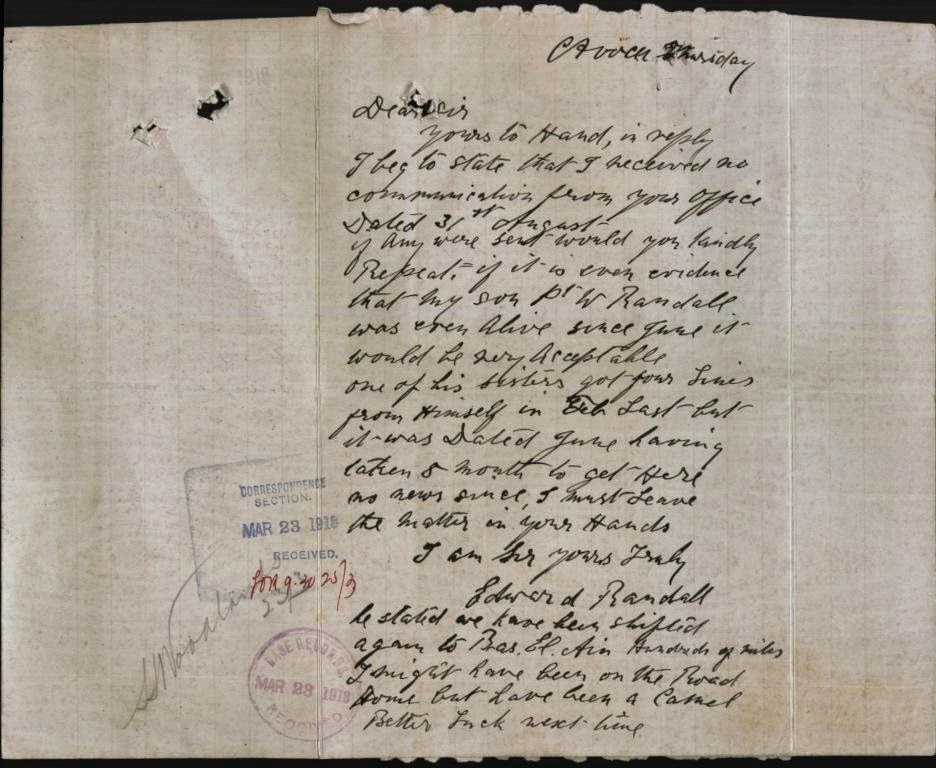 Avoca Thursday
Dear Sir
Yours to Hand, in reply
I beg to state that I received no
communication from your office
Dated 31st August
if Any were sent would you kindly
Repeat. if it is even evidence
that my son Pt W Randall
was even Alive since June it
would be very Acceptable
one of his sisters got four Lines
from Himself in Feb Last but
it was Dated June having
taken 8 month to get Here
no news since, I must Leave
the Matter in your Hands
I am Sir yours Truly
Edward Randall
he stated we have been shifted
again to Ras. El. Ain Hundreds of miles
I might have been on the Road
Home but have been a Camel
Better Luck next time
CORRESPONDENCE
SECTION.
MAR 23 1918
RECEIVED.
25/3
BASE RECORDS
MAR 23 1918
RECEIVED